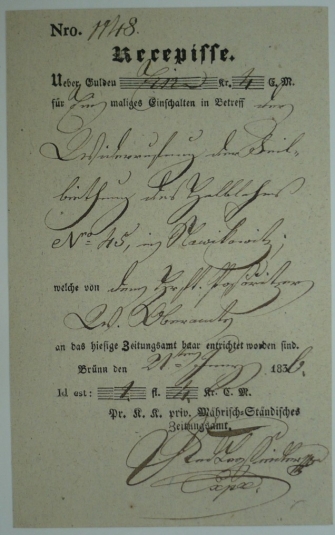 Nro. 1148.
Recepisse.
Ueber Gulden Ein Kr. 4 C. M.
für Ein maliges Einschalten in Betreff der
Widerrufung der Feil-
biethung des Halblehns
Nro 45, in
welche von dem
W. Oberamte
an das hiesige Zeitungsamt baar entrichtet worden sind.
Brünn den 21ten 1836.
Id est: 1 fl. 4 Kr. C. M.
Pr. K. K. priv. Mährisch-Ständisches
Zeitungsamt.